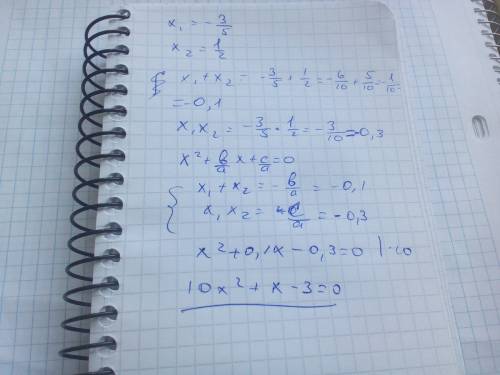 x₁ = -3/5
x₂ = 1/2
x₁ + x₂ = -3/5 + 1/2 = -6/10 + 5/10 = -1/10
= -0,1
x₁x₂ = -3/5 · 1/2 = -3/10 = -0,3
x² + b/a x + c/a = 0
x₁ + x₂ = -b/a = -0,1
x₁ x₂ = c/a = -0,3
x² + 0,1x - 0,3 = 0 | ·10
10x² + x - 3 = 0